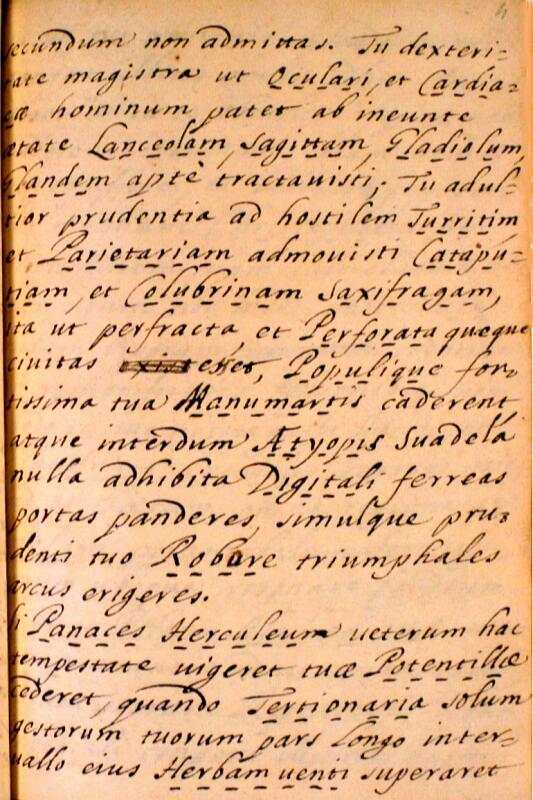 4
secundum non admittas. Tu dexteri-
tate magistra ut Oculari, et Cardia-
cæ hominum patet ab ineunte
ætate Lanceolam, Sagittam, Gladiolum,
Glandem aptè tractavisti; Tu adul-
tior prudentia ad hostilem Turritim
et Parietariam admovisti Catapu-
tiam, et Colubrinam Saxifragam,
ita ut perfracta, et Perforata quæque
civitas esset, Populique for-
tissima tua Manumartis caderent
atque interdum Ætyopis Suadelâ
nulla adhibita Digitali ferreas
portas panderes, simulque pru-
denti tuo Robore triumphales
arcus erigeres.
Si Panaces Herculeum veterum hac
tempestate vigeret tuæ Potentillæ
cederet, quando Tertionaria solum
gestorum tuorum pars longo inter-
vallo eius Herbam venti superaret